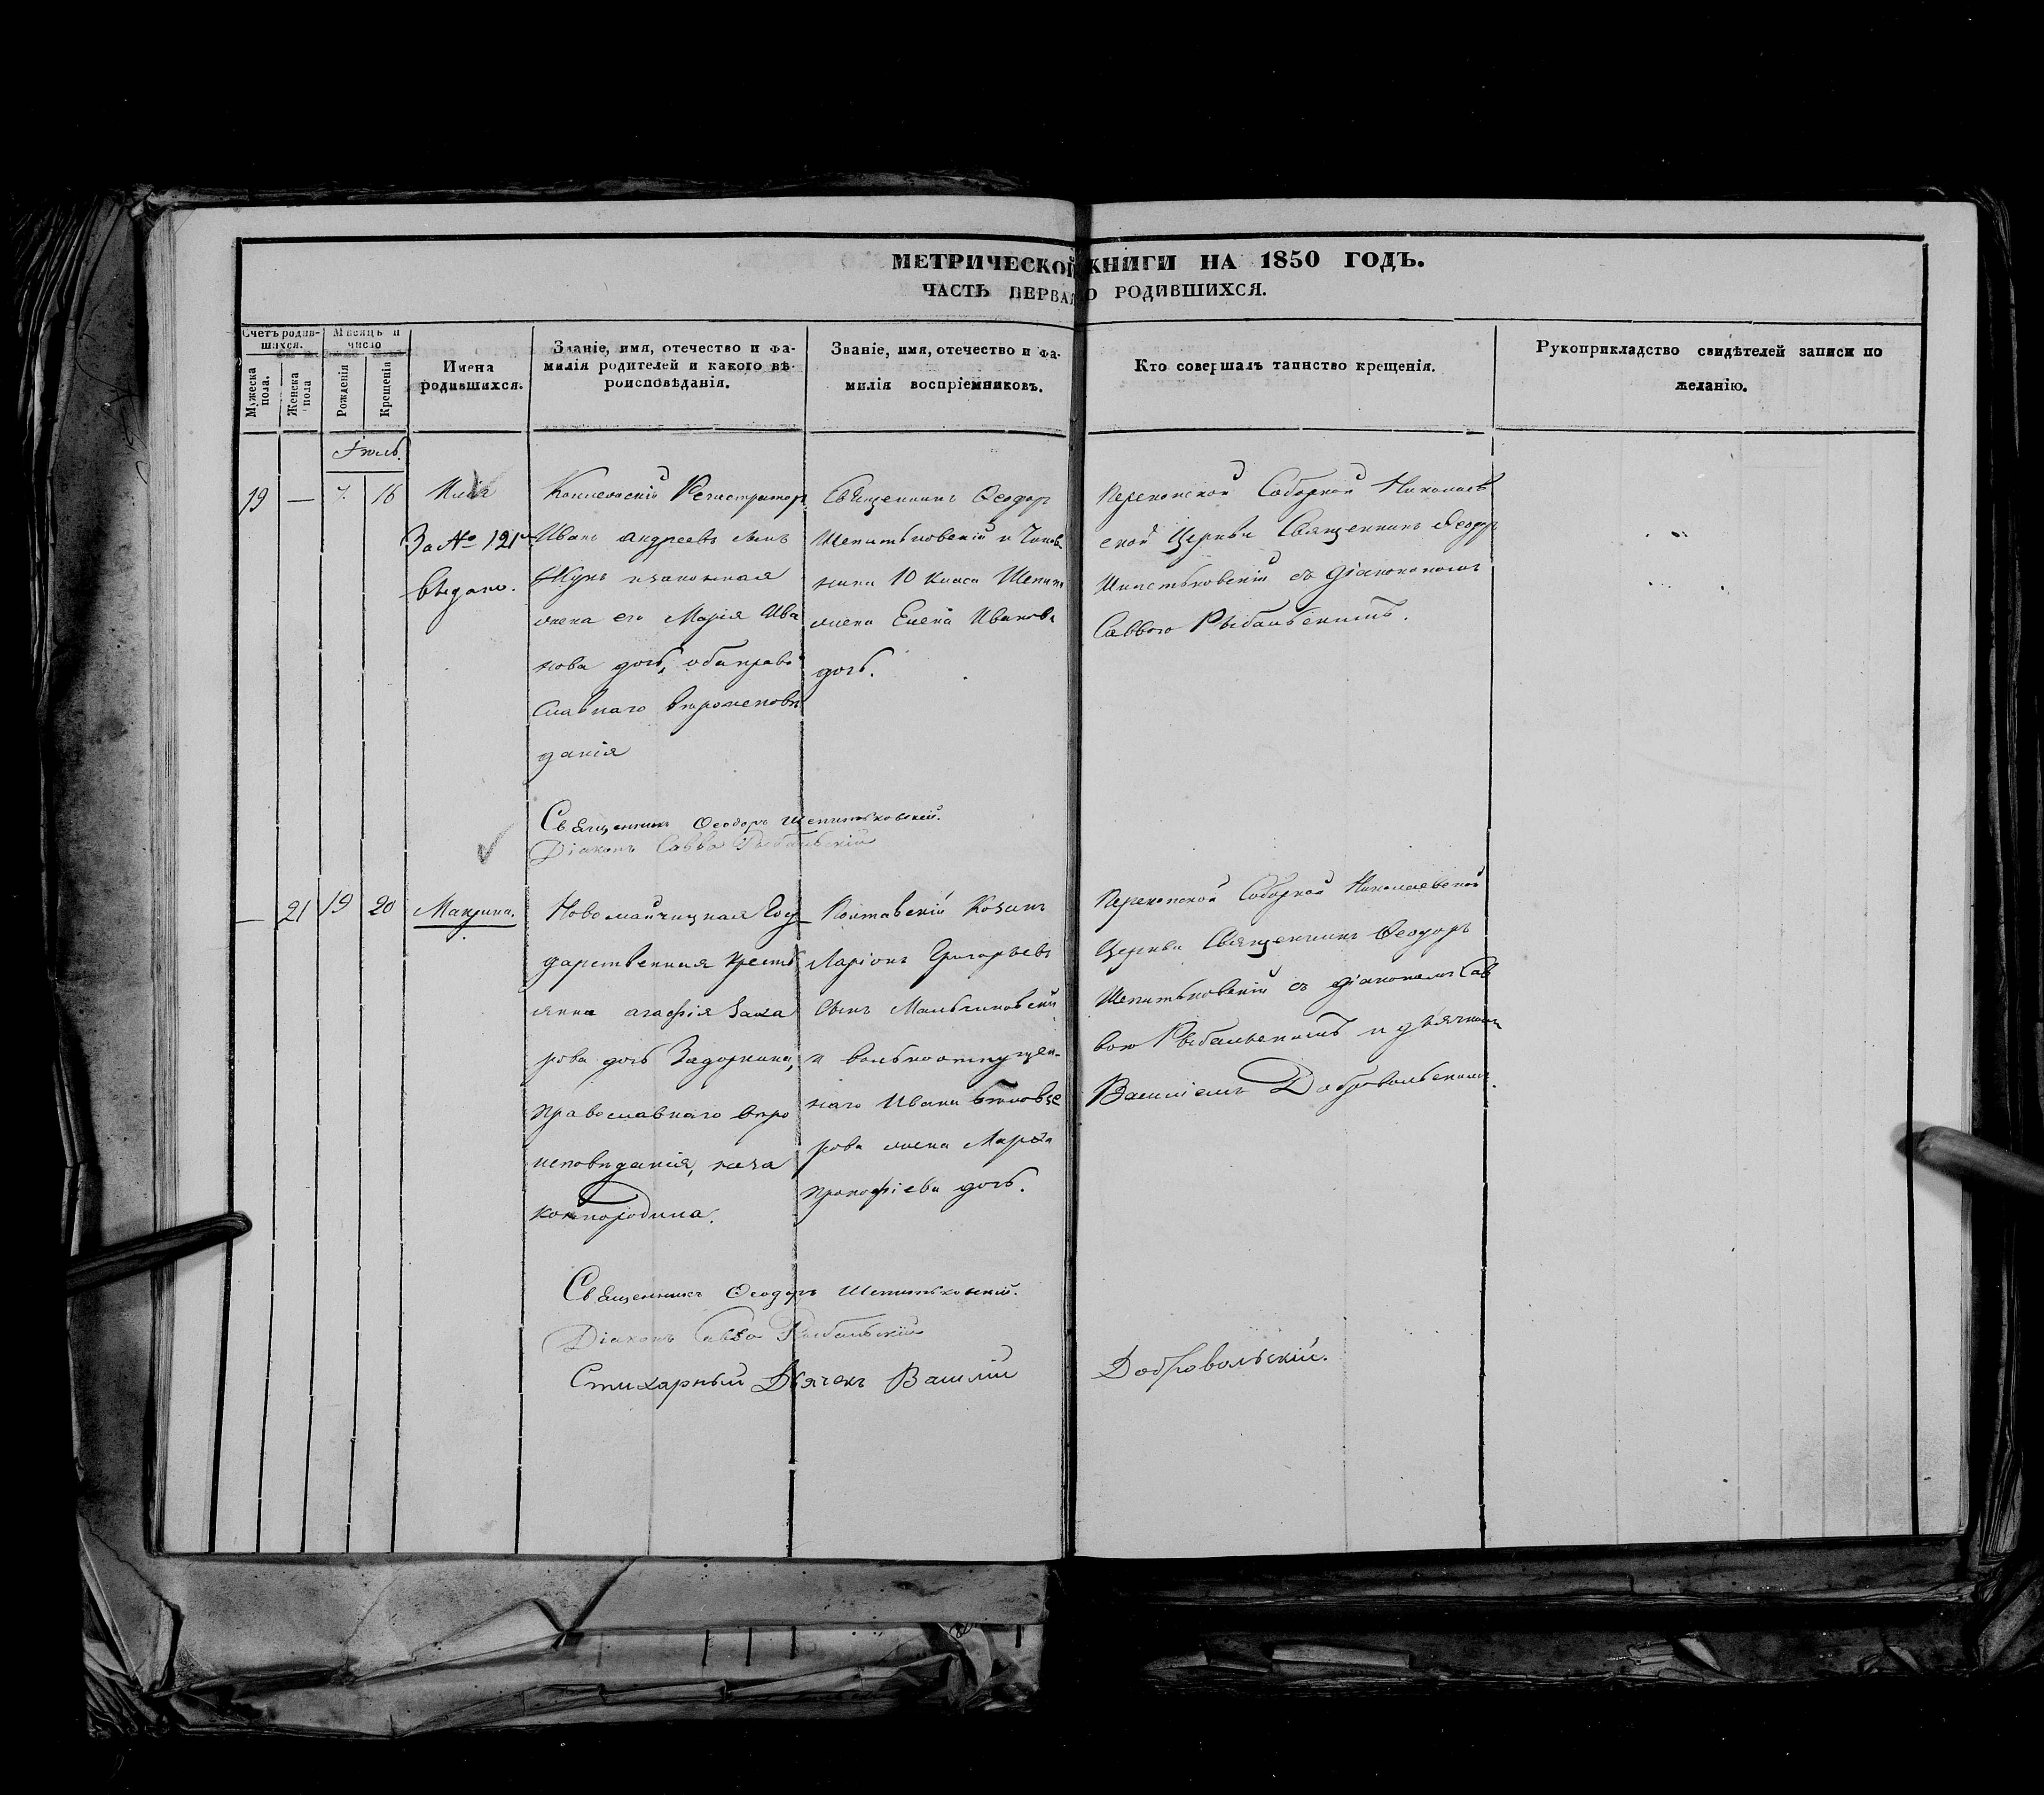 МЕТРИЧЕСКОЙ КНИГИ НА 1850 ГОДЪ.
ЧАСТЬ ПЕРВАЯ О РОДИВШИХСЯ.
Счетъ родив-
шихся.
Мужеска
пола.
Женска
пола
Мѣсяцъ и
число
Рожденія
Крещенія
Имена
родившихся.
Званіе, имя, отечество и фа-
милія родителей и какого вѣ-
роисповѣданія.
Званіе, имя, отечество и фа-
милія воспріемниковъ.
Кто совершалъ таинство крещенія.
Рукоприкладство свидѣтелей записи по
желанію.
Іюль.
19 — 7. 16 Илія
За № 121
выдано.
Коллежскій Регистраторъ
Иванъ Андреевъ сынъ
Жукъ и законная
жена его Марія Ива
нова дочь, оба право
славнаго вѣроисповѣ
данія
Священникъ Ѳеодоръ
Шепитьковскій и Чинов
ника 10 класа
жена Елена Иванова
дочь.
Перекопской Соборной Николаев
ской Церкви Священникъ Ѳеодоръ
Шепитьковскій съ діакономъ
Саввою Рыбальскимъ.
Священникъ Ѳеодоръ Шепитьковскій.
Діаконъ Савва Рыбальскій
— 21 19 20 Макрина.
Новомайчицкая Госу
дарственная Кресть
янка Агафія Заха
рова дочь Задоркина,
православнаго вѣро
исповѣданія, неза
коннородила.
Полтавскій Козакъ
Ларіонъ Григорьевъ
сынъ Мальчиновскій
и вольноотпущен-
наго Ивана
рова жена Марѳа
Прокофіева дочь.
Перекопской Соборной Николаевской
Церкви Священникъ Ѳеодоръ
Шепитьковскій съ діакономъ Сав
вою Рыбальскимъ и дьячкомъ
Василіемъ Добровольскимъ.
Священникъ Ѳеодоръ Шепитьковскій.
Діаконъ Савва Рыбальскій
Стихарный Дьячекъ Василій Добровольскій.